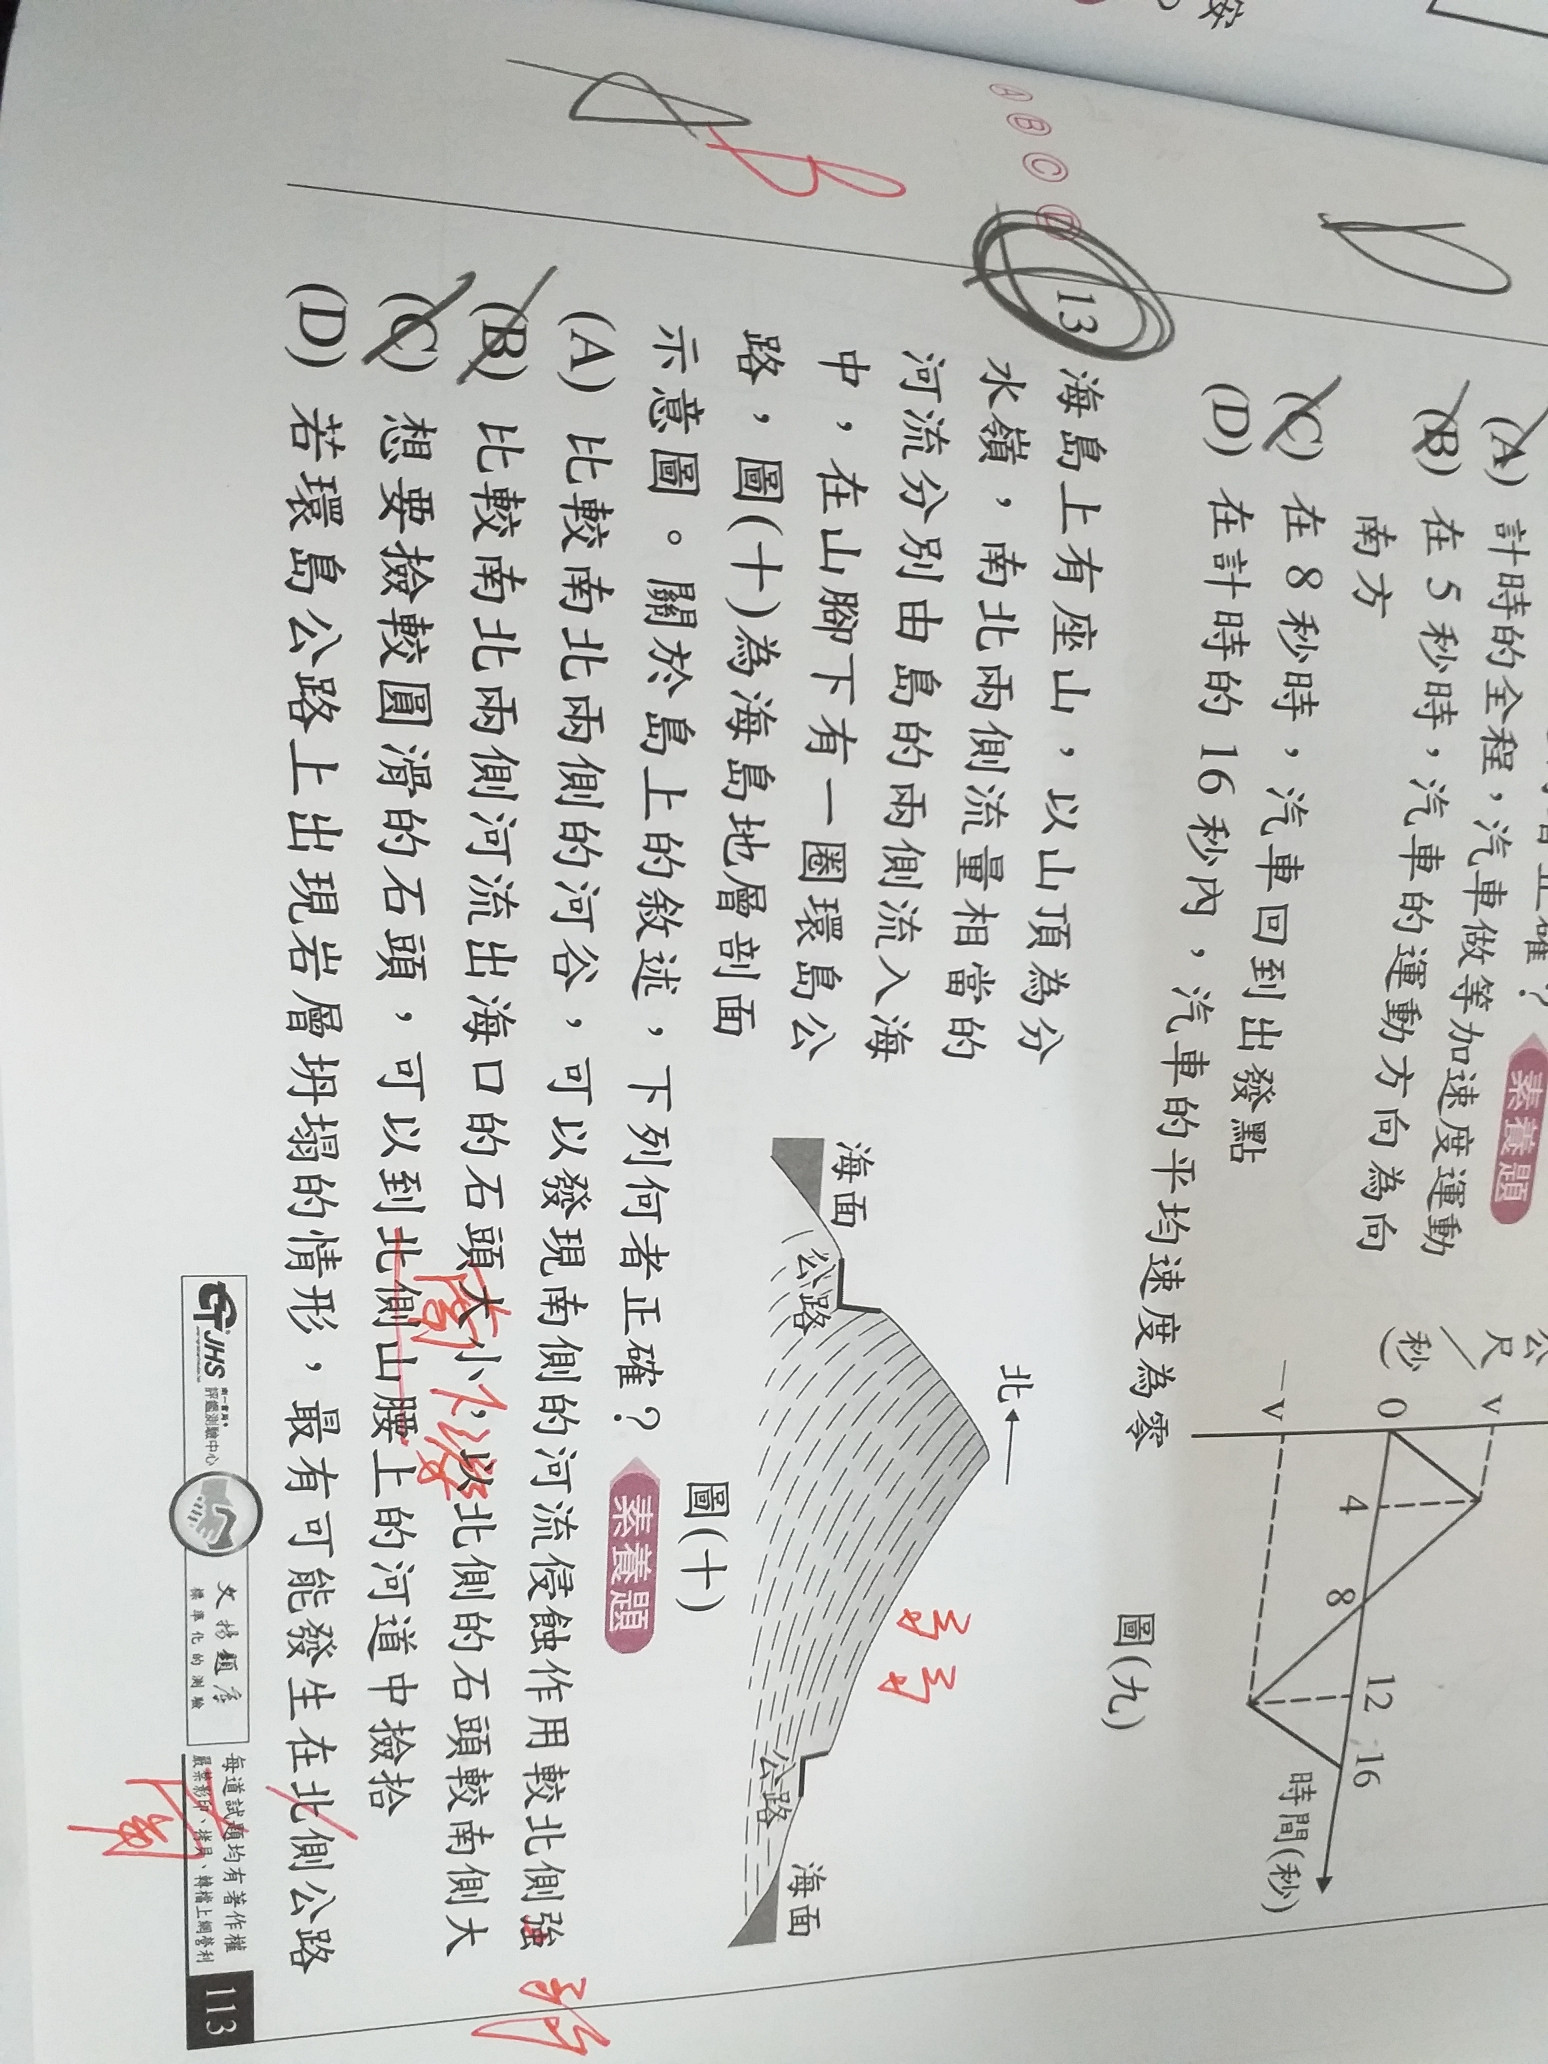 (A) 計時的全程，汽車做等加速度運動
(B) 在 5 秒時，汽車的運動方向為向
南方
(C) 在 8 秒時，汽車回到出發點
(D) 在計時的 16 秒內，汽車的平均速度為零
素養題
公尺/秒
v
0
-v
4
8
12
16
時間(秒)
圖(九)
Ⓐ Ⓑ Ⓒ Ⓓ
B
13 海島上有座山，以山頂為分
水嶺，南北兩側流量相當的
河流分別由島的兩側流入海
中，在山腳下有一圈環島公
路，圖(十)為海島地層剖面
示意圖。關於島上的敘述，下列何者正確？ 素養題
北
海面
公路
公路
海面
圖(十)
(A) 比較南北兩側的河谷，可以發現南側的河流侵蝕作用較北側強
(B) 比較南北兩側河流流出海口的石頭大小，以北側的石頭較南側大
(C) 想要撿較圓滑的石頭，可以到北側山腰上的河道中撿拾
(D) 若環島公路上出現岩層坍塌的情形，最有可能發生在北側公路
JHS
評鑑測驗中心
文揚題庫
標準化的測驗
每道試題均有著作權
嚴禁影印、拷貝、轉檔上網營利
113